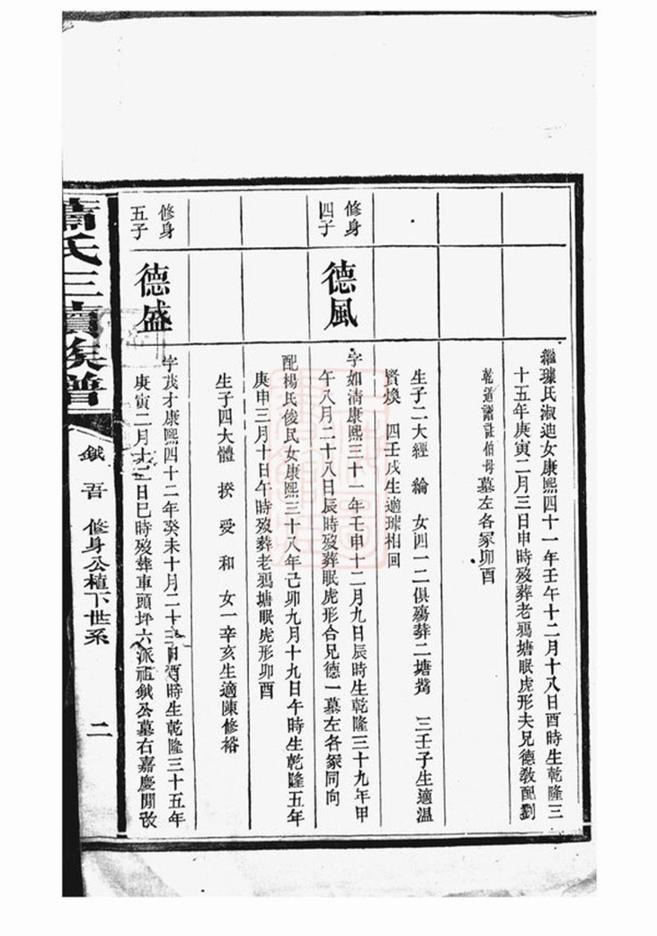 繼璩氏淑迪女康熙四十一年壬午十二月十八日酉時生乾隆三
十五年庚寅二月三日申時歿葬老鴉塘眠虎形夫兄德敎配劉
墓左各冢卯酉
生子二大經 綸 女四一二俱殤葬二塘灣 三壬子生適溫
賢煥 四壬戌生適璩相回
修身
四子
德風
字如清康熙三十一年壬申十二月九日辰時生乾隆三十九年甲
午八月二十八日辰時歿葬眠虎形合兄德一墓左各冢同向
配楊氏俊民女康熙三十八年己卯九月十九日午時生乾隆五年
庚申三月十日午時歿葬老鴉塘眠虎形卯酉
生子四大體 揆 愛 和 女一辛亥生適陳修裕
修身
五子
德盛
字茂才康熙四十二年癸未十月二十三日酉時生乾隆三十五年
庚寅二月十二日巳時歿葬車頭坪六派祖鉞公墓右嘉慶閒改
蕭氏三續族譜
鉞 吾 修身公植下世系
二